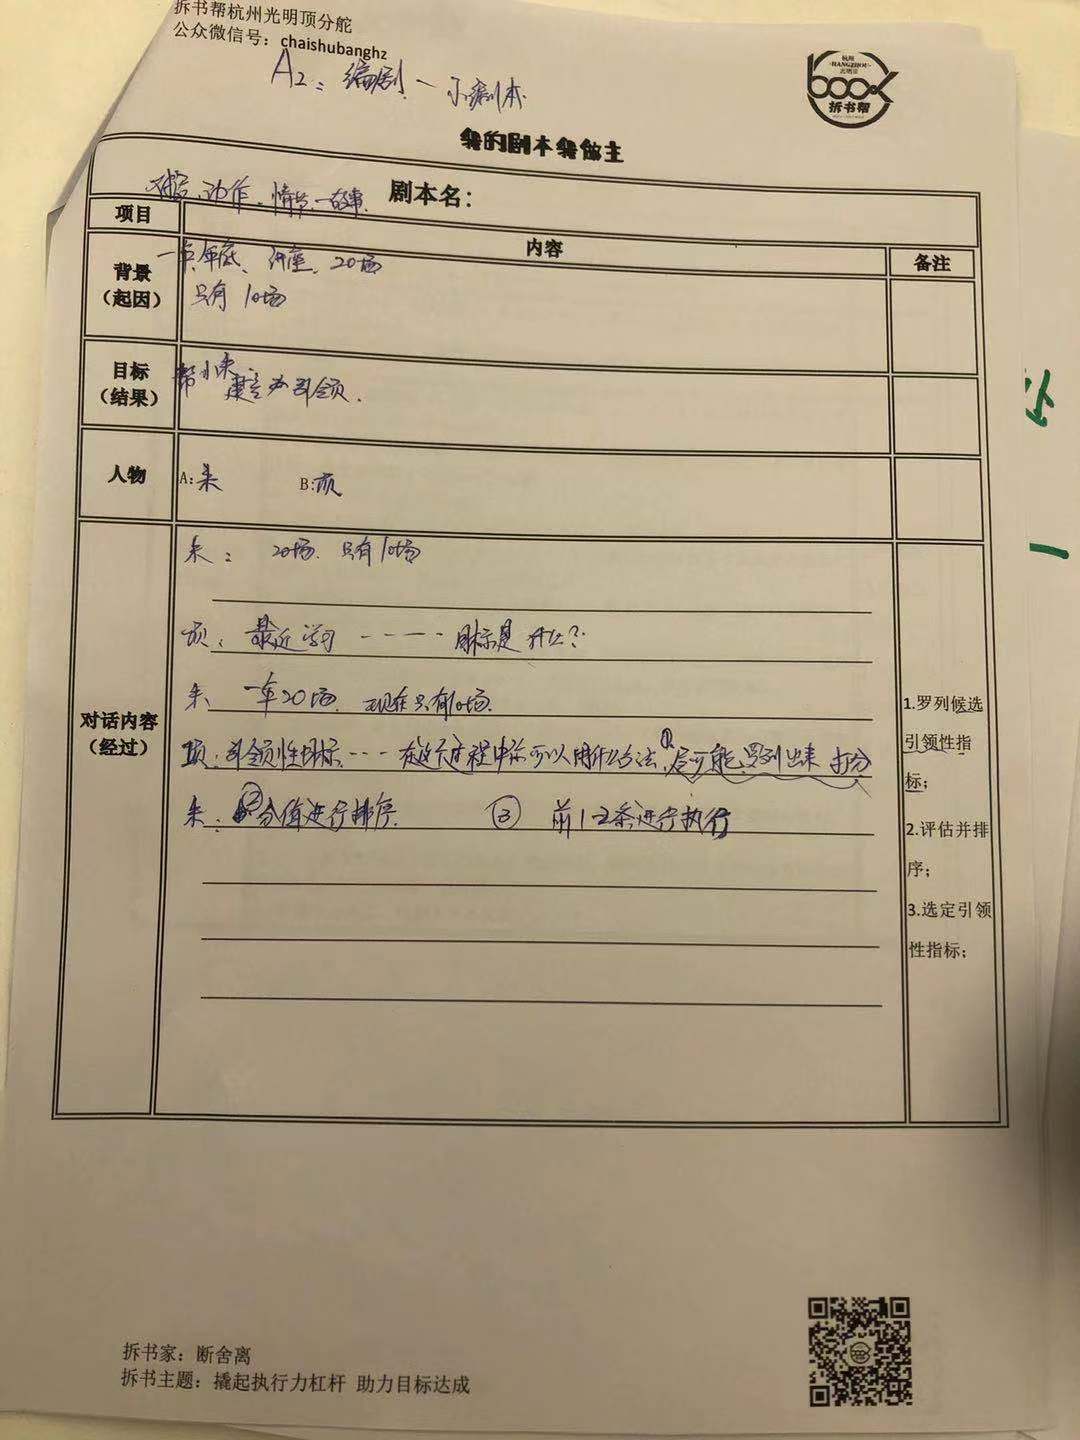 拆书帮杭州光明顶分舵
公众微信号：chaishubanghz
A2：编剧一小剧本
杭州
HANGZHOU
book
拆书帮
我的剧本我做主
动作、情节、故事 剧本名：
项目 内容 备注
背景
（起因）
年底、讲座、20场
只有10场
目标
（结果）
帮小朱
引领.
人物 A:朱 B:项
朱： 20场. 只有10场
项：最近学习 ---- 目标是什么？
朱、一年20场. 现在只有10场.
项：引领性指标---- 在这个过程中你可以用什么方法，①尽可能罗列出来 打分
朱：②分值进行排序. ③ 前1-2条进行执行
对话内容
（经过）
1.罗列候选
引领性指
标；
2.评估并排
序；
3.选定引领
性指标；
拆书家：断舍离
拆书主题：撬起执行力杠杆 助力目标达成